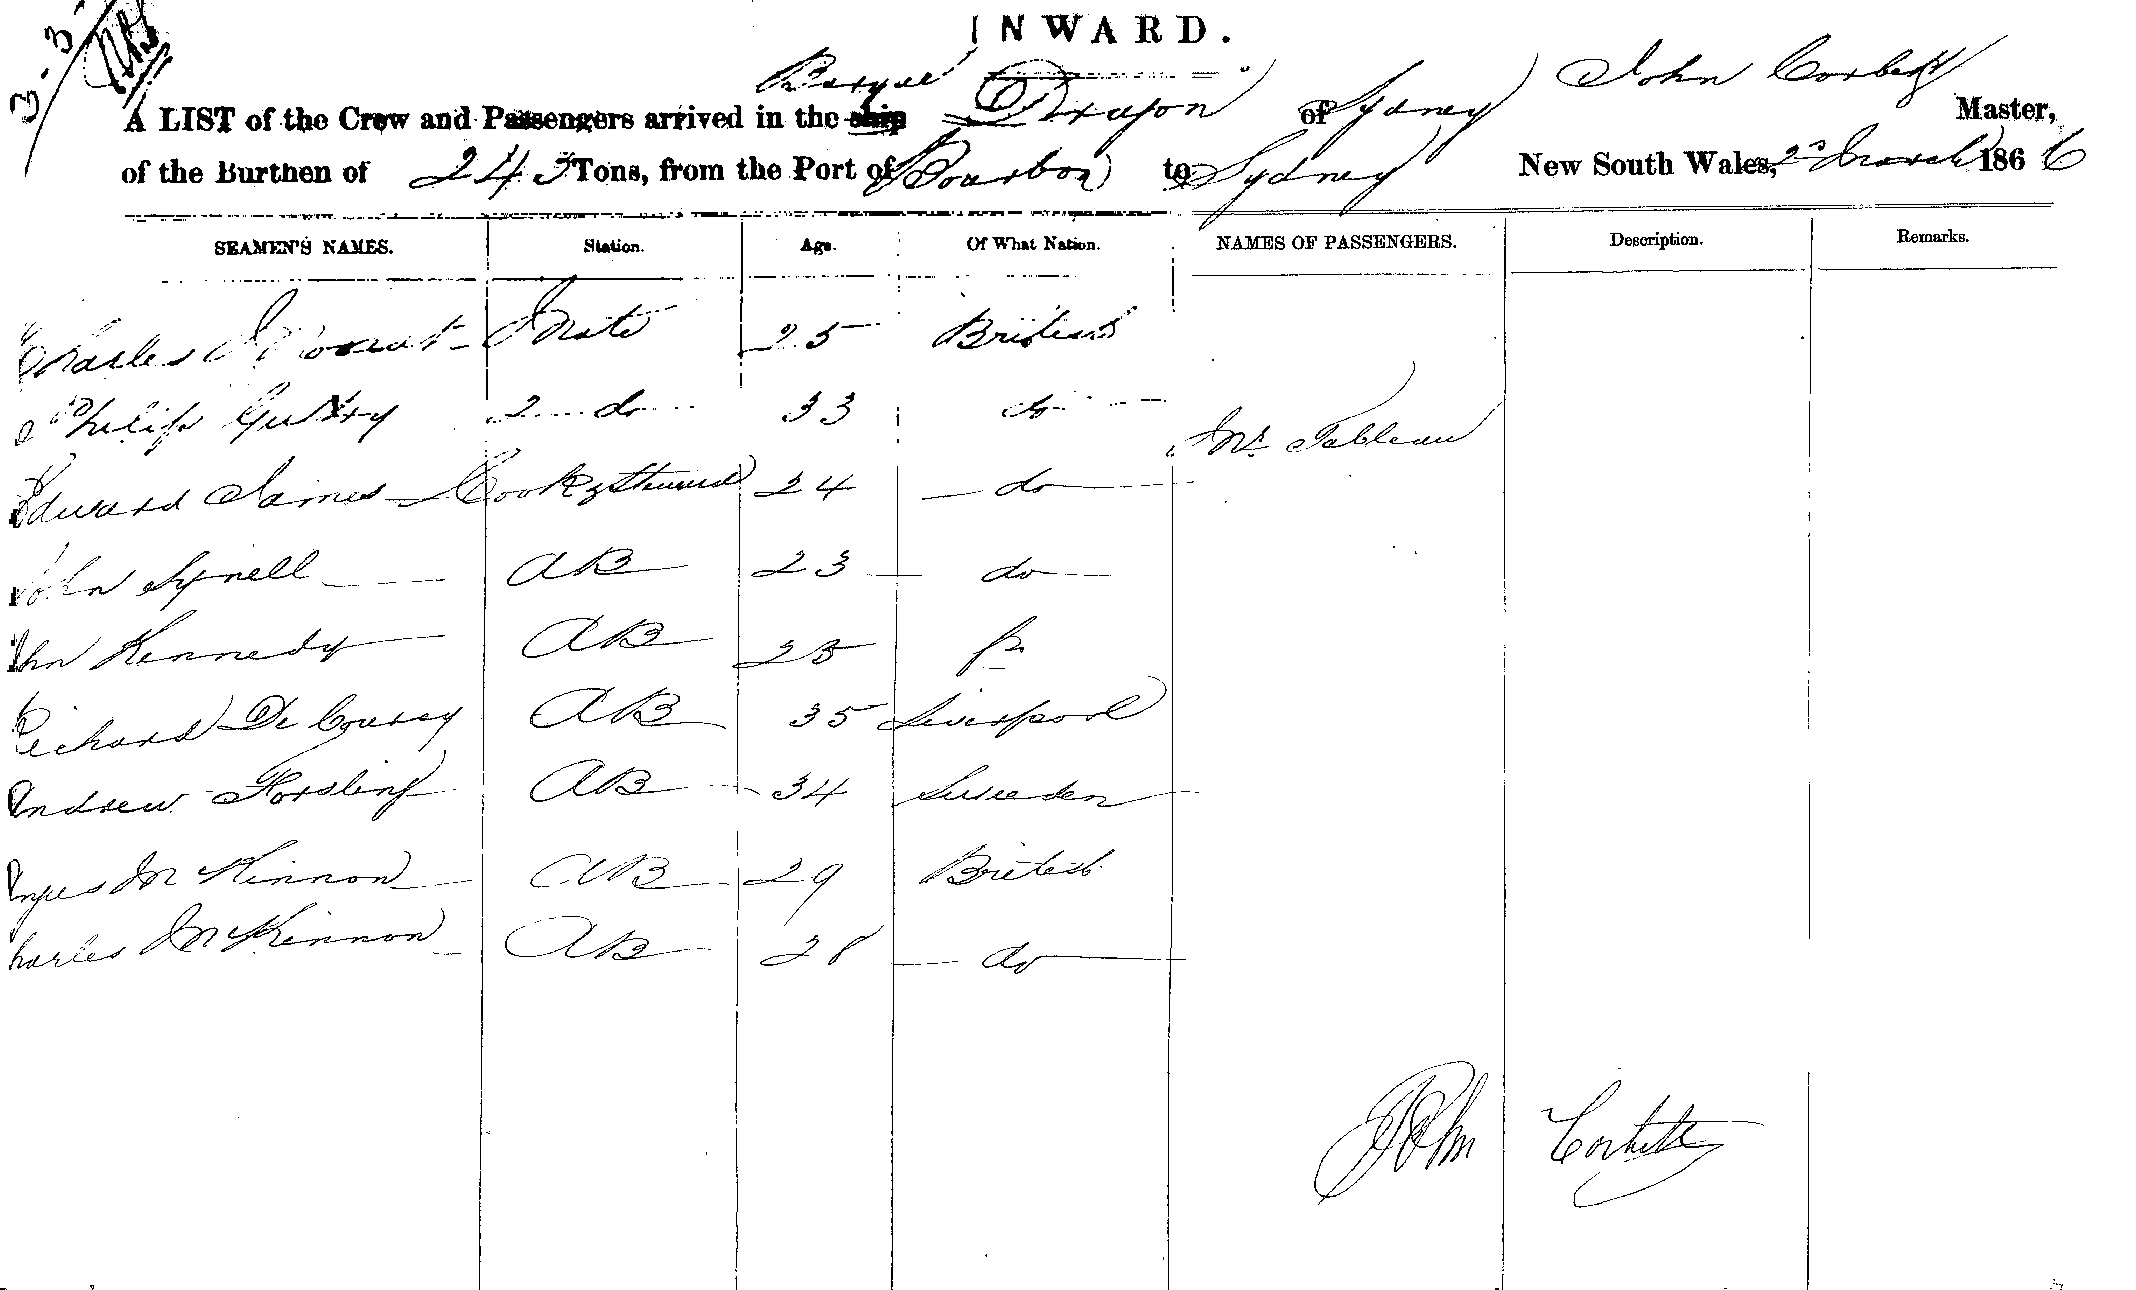 3-3-
INWARD.
Barque Dragon of Sydney John Corbett
A LIST of the Crew and Passengers arrived in the ship Master,
of the Burthen of 243 Tons, from the Port of Bourbon to Sydney New South Wales, 2d March 1866
SEAMEN'S NAMES. Station. Age. Of What Nation. NAMES OF PASSENGERS. Description. Remarks.
Charles Mate 25 British
Philip 2 do 33 do
Mr. Tableau
Edward James Cook & Steward 24 do
John AB 23 do
John Kennedy AB
Richard De Courcy AB 35 Liverpool
Andrew Forsling AB 34 Sweeden
Angus McKinnon AB 29 British
Charles McKinnon AB 28 do
John Corbett